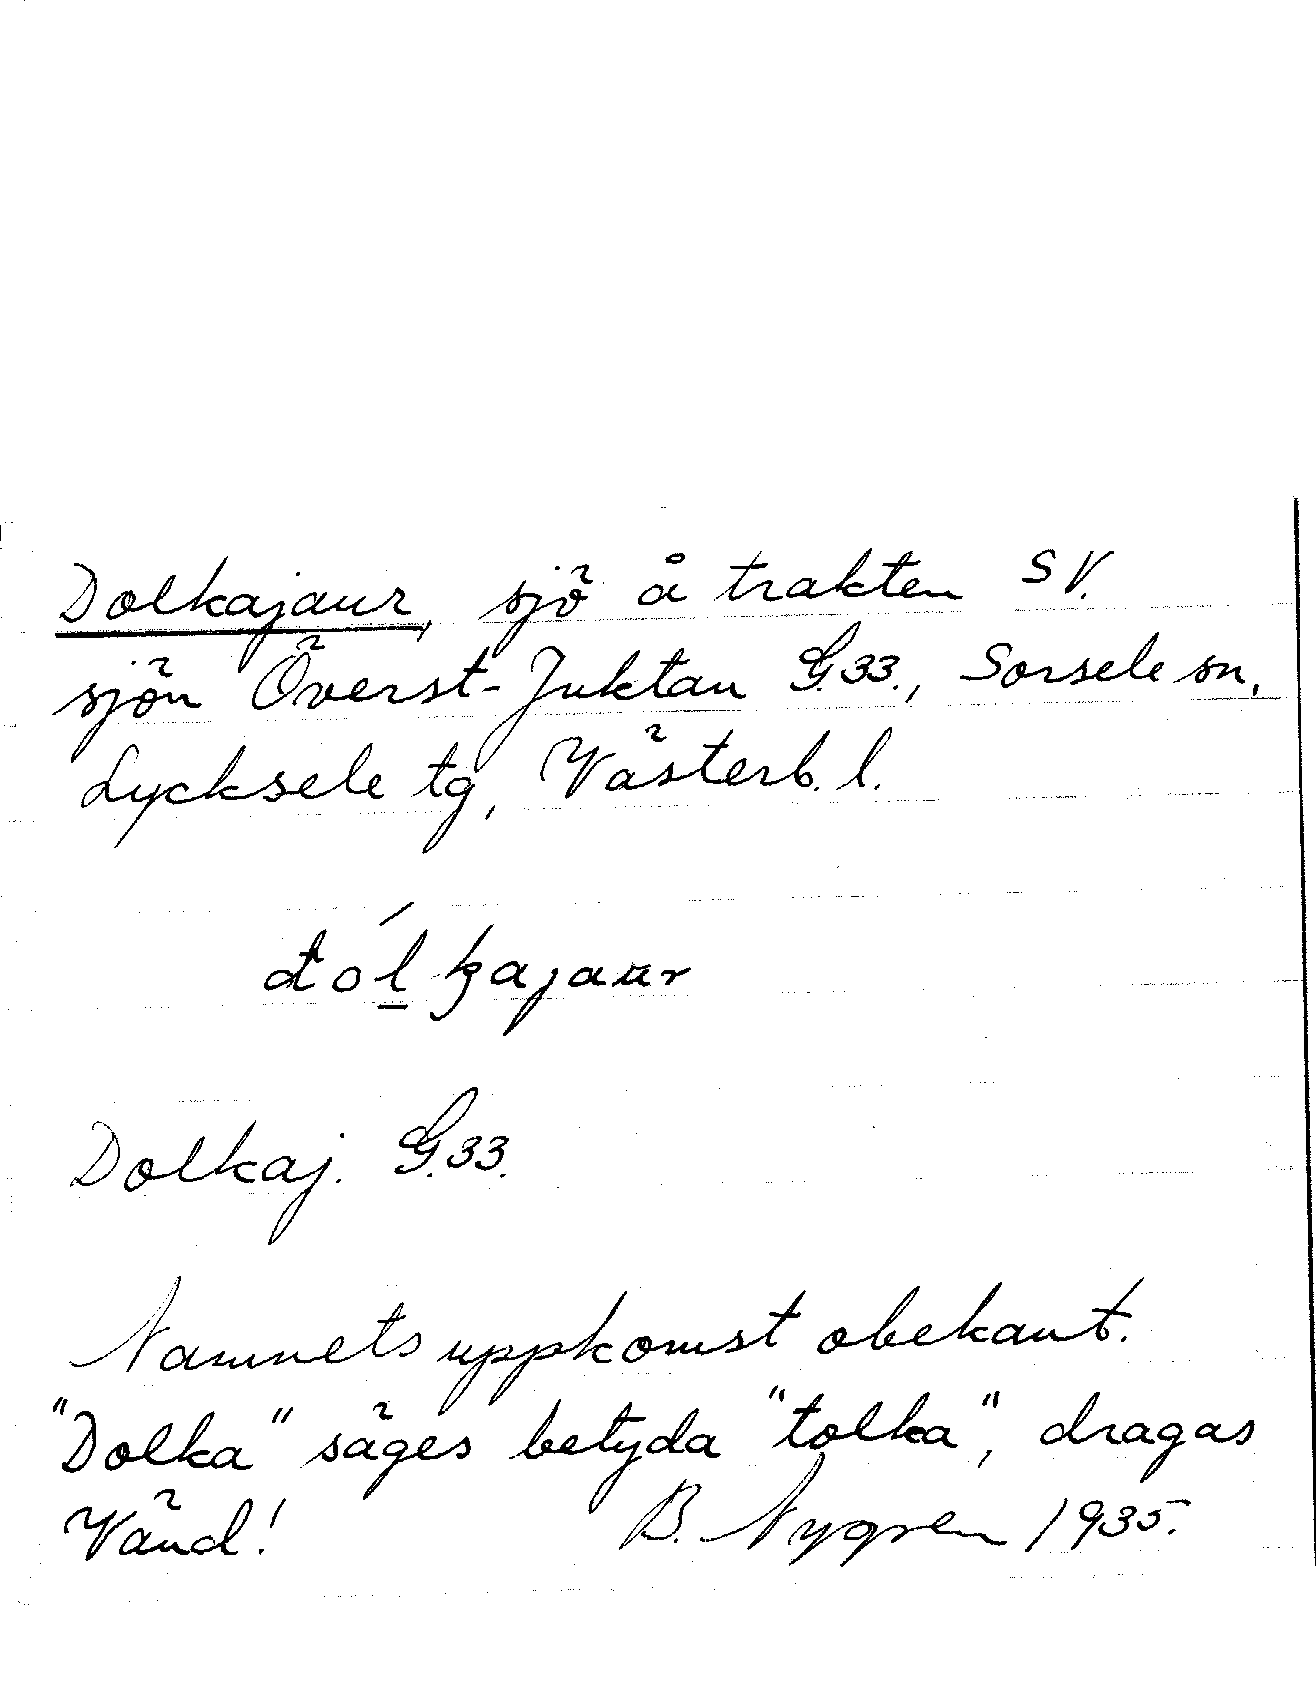 Dolkajaur, sjö å trakten SV.
sjön Överst-Juktan G.33., Sorsele sn,
Lycksele tg, Västerb. l.
dólkajaur
Dolkaj. G.33.
Namnets uppkomst obekant.
"Dolka" säges betyda "tolka", dragas
Vänd! B. Nygren 1935.